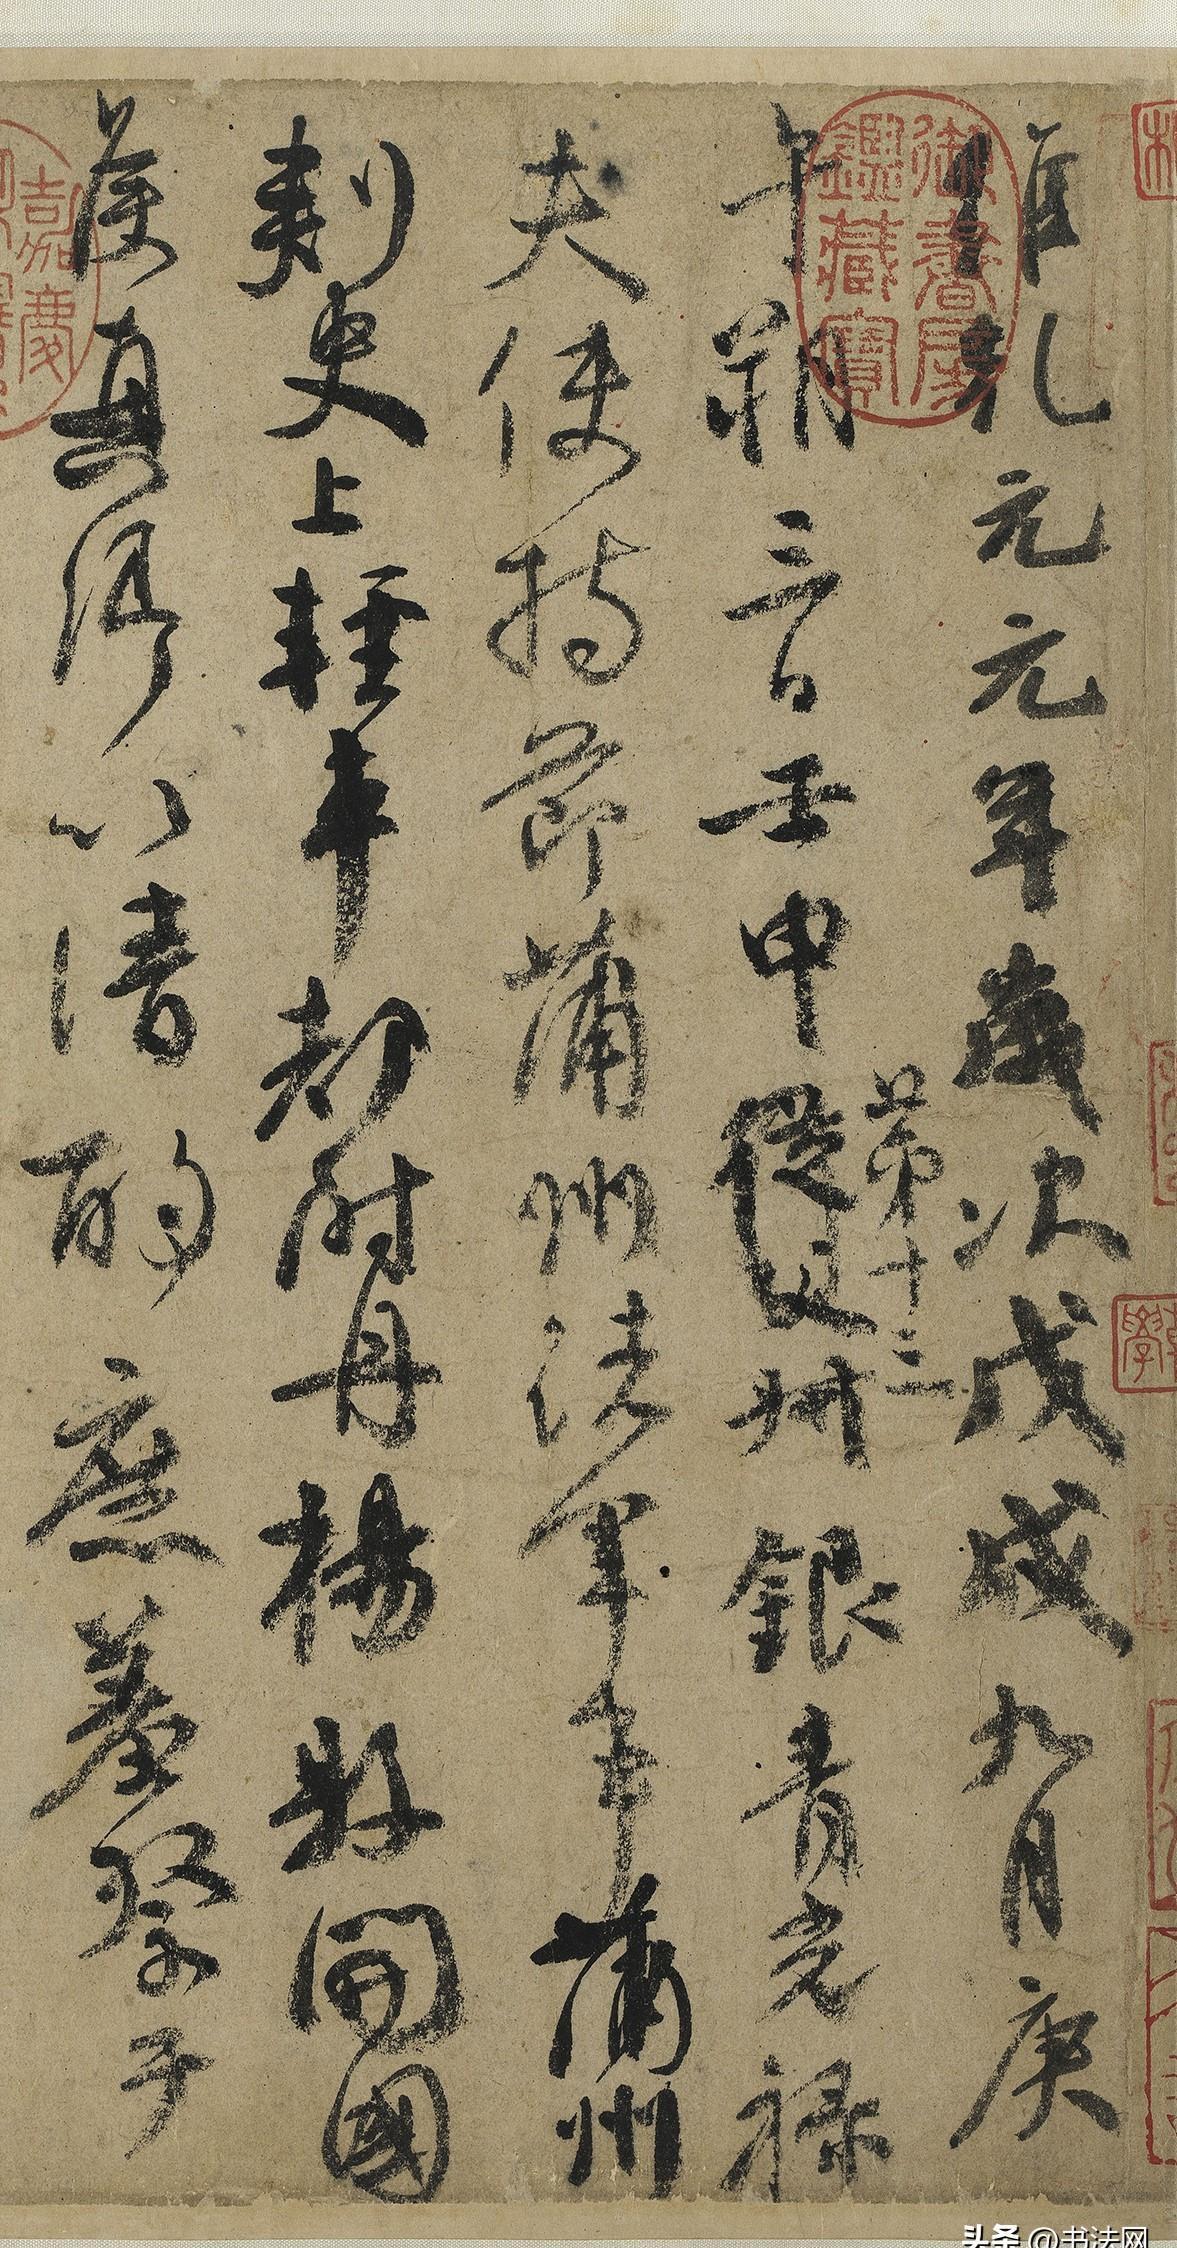 維乾元元年歲次戊戌九月庚
午朔三日壬申
第十三
從父
銀青光祿
夫使持節蒲州諸軍事蒲州
刺史上輕車都尉丹楊縣開國
侯真卿以清酌庶羞祭于
御書房鑑藏寶
嘉慶
頭條 @书法网